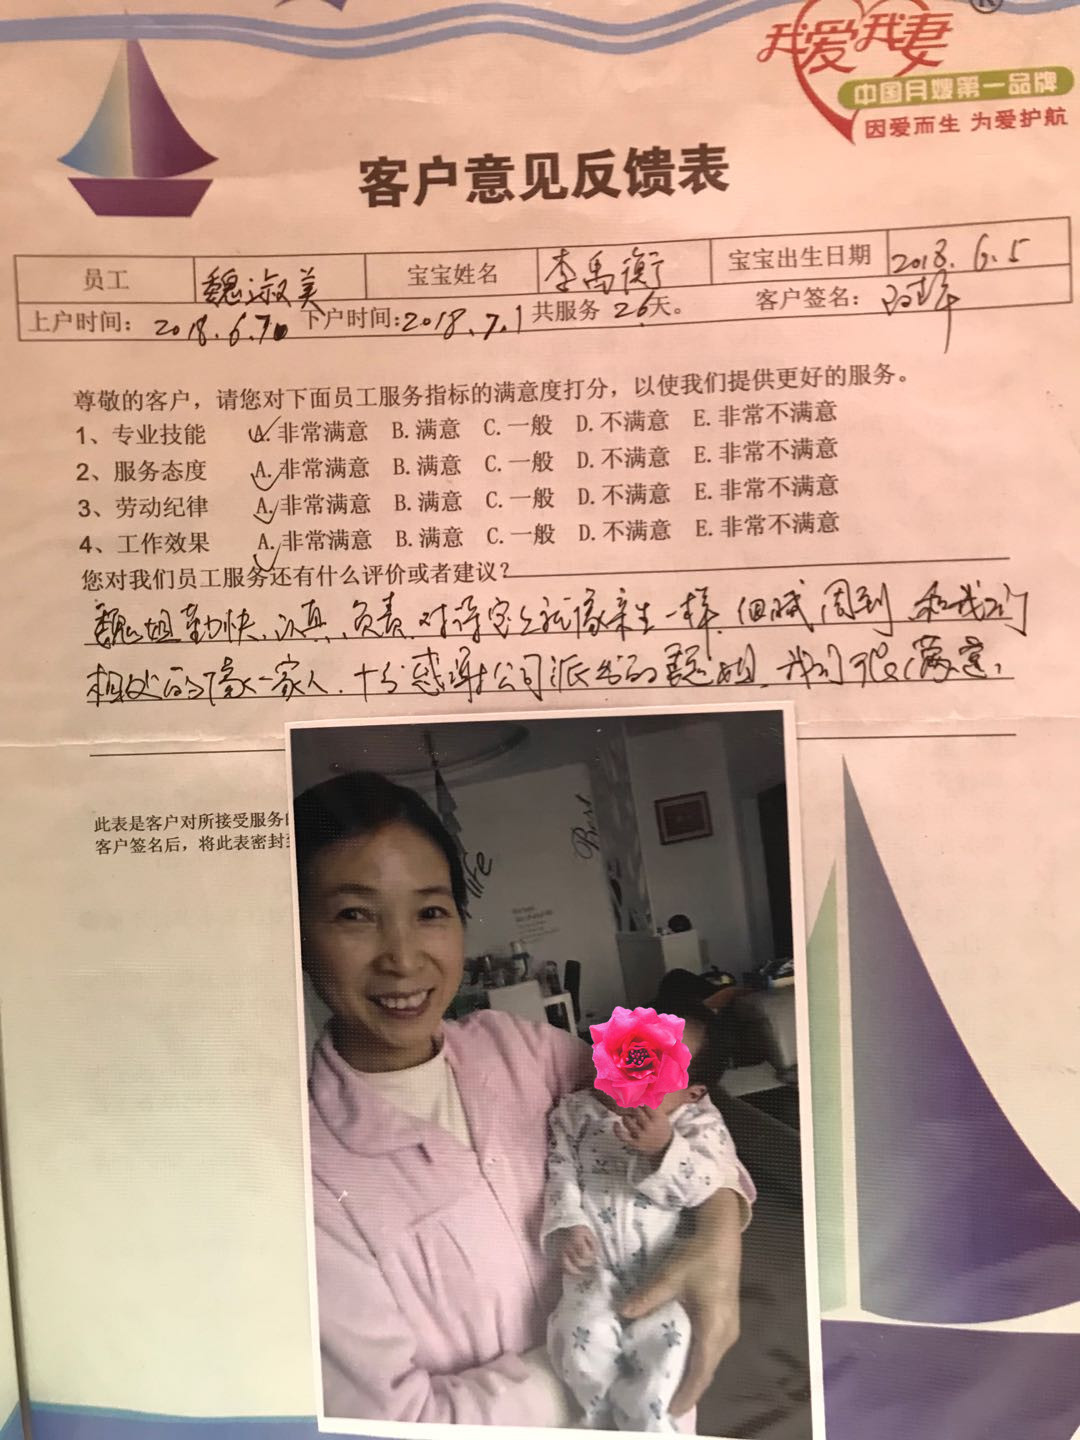 我爱我妻
®
中国月嫂第一品牌
因爱而生 为爱护航
客户意见反馈表
员工 魏淑美 宝宝姓名 李禹衡 宝宝出生日期 2018.6.5
上户时间: 2018.6.7 下户时间:2018.7.1 共服务 26天。 客户签名:
尊敬的客户，请您对下面员工服务指标的满意度打分，以使我们提供更好的服务。
1、专业技能 A.非常满意 B.满意 C.一般 D.不满意 E.非常不满意
2、服务态度 A.非常满意 B.满意 C.一般 D.不满意 E.非常不满意
3、劳动纪律 A.非常满意 B.满意 C.一般 D.不满意 E.非常不满意
4、工作效果 A.非常满意 B.满意 C.一般 D.不满意 E.非常不满意
您对我们员工服务还有什么评价或者建议?
魏姐勤快、认真、负责、对待宝宝就像亲生一样、细腻周到、和我们
相处的像一家人、十分感谢公司派出的魏姐、我们很满意!
life
Best
此表是客户对所接受服务的
客户签名后，将此表密封至